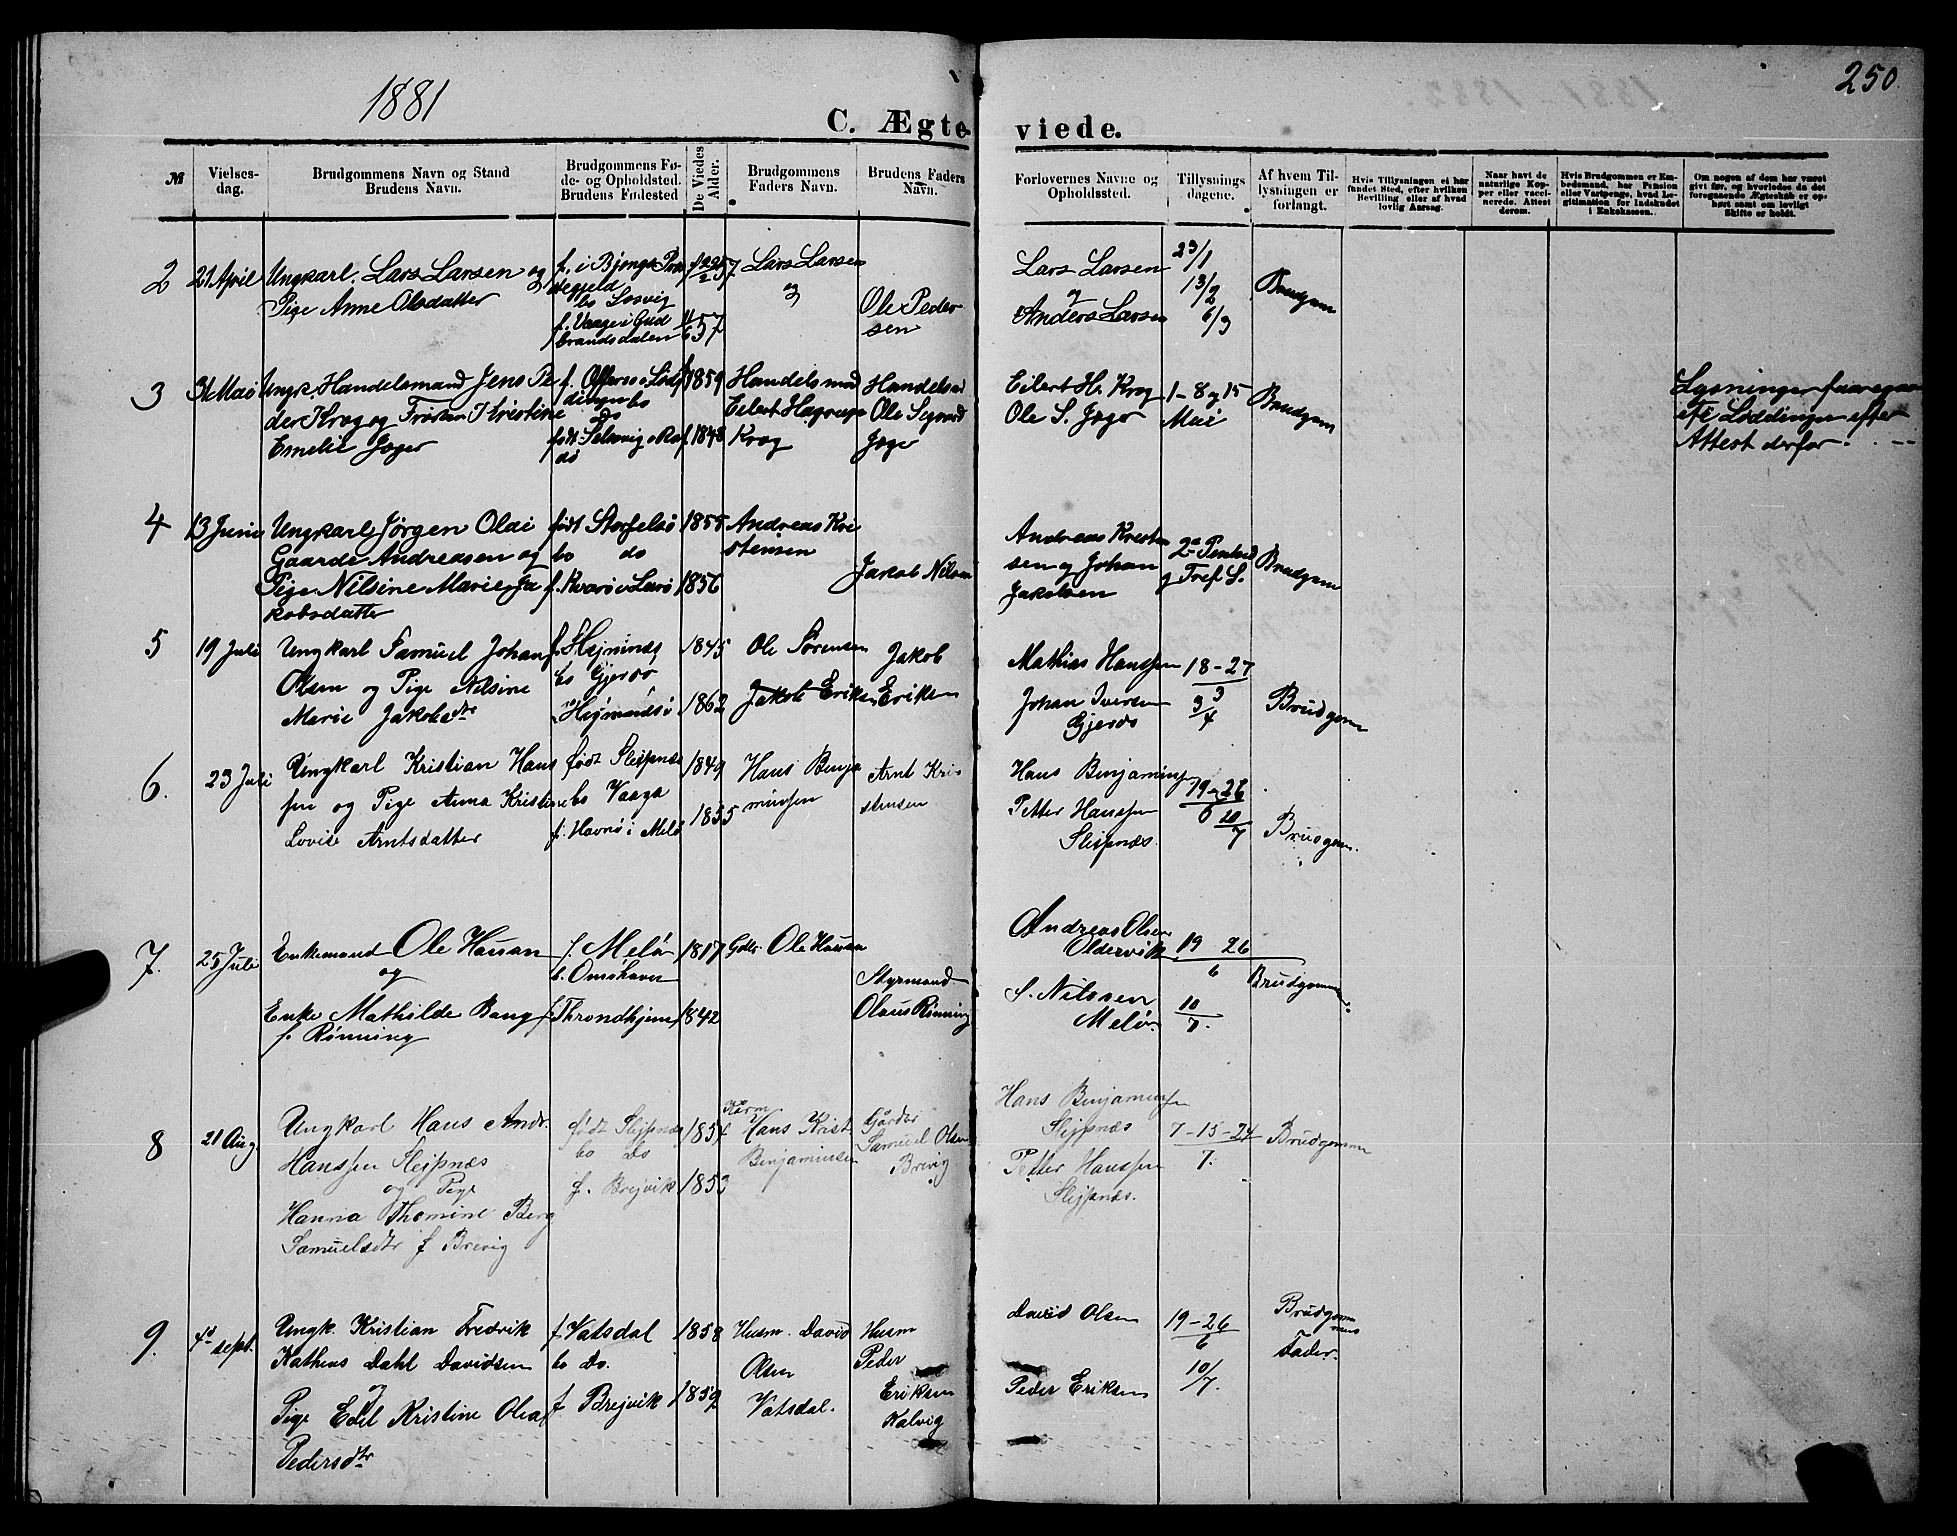 1881
250
C. Ægteviede.
№
Vielsesdag.
Brudgommens Navn og Stand
Brudens Navn.
Brudgommens Føde- og Opholdsted.
Brudens Fødested
De Viedes Alder.
Brudgommens Faders Navn.
Brudens Faders Navn.
Forlovernes Navne og Opholdssted.
Tillysningsdagene.
Af hvem Tillysningen er forlangt.
Hvis Tillysningen ei har fundet Sted, efter hvilken Bevilling eller af hvad lovlig Aarsag.
Naar havt de naturlige Kopper eller vaccinerede. Attest derom.
Hvis Brudgommen er Embedsmand, har Pension eller Vartpenge, hvad Legitimation for Indskudet i Enkekassen.
Om nogen af dem har været givt før, og hvorledes da det foregaaende Ægteskab er ophørt samt om lovligt Skifte er holdt.
2
21 April
Ungkarl. Lars Larsen og
Pige Anne Olsdatter
f. Vaage i Gud
brandsdalen
57
Lars Larsen
Ole Peder
sen
Lars Larsen
og
Anders Larsen
23/1
13/2
6/3
Brudgom
3
Ungk. Handelsmand Jens Pe
der Krog og Frøken Kristine
Emelie Jæger
1859
1848
Handelsmd
Eilert Hagerup
Krog
Handelsmd
Ole Sigvard
Jæger
Eilert H. Krog
Ole S. Jæger
1-8 og 15
Mai
Brudgom
Attest derfor.
4
13 Juni
Ungkarl Jørgen Olai
Gaarde Andreasen og
Pige Nilsine Marie Ja
kobsdatter
født Storselsö
bo do
1855
1856
Andreas Kri
stensen
Jakob Nilsen
Andreas Kristen
sen og Johan
Jakobsen
Brudgom
5
19 Juli
Ungkarl Samuel Johan
Olsen og Pige Nilsine
Marie Jakobsdtr
bo Gjerøe
1845
1862
Ole Sørensen
Jakob Eriksen
Jakob
Eriksen
Mathias Hanssen
Johan Iversen
Gjerøe
18-27
3
3/4
Brudgom
6.
23 Juli
Ungkarl Kristian Hans
sen og Pige Anna Kristine
Lovise Arntsdatter
født Sleipnæs
bo Vaaga
f. Havnö i Melö
1849
1855
Hans Benja
minsen
Arnt Kri
stensen
Hans Benjaminsen
Petter Hanssen
Sleipnæs.
19 26
6
10/7
Brudgom.
7.
25 Juli
Enkemand Ole Hassan
og
Enke Mathilde Bang
f. Rønning
f. Melö
b. Onöhavn
f. Throndhjem
1817
1842
Gdbr. Ole Hassan
Styrmand
Olaus Rønning
Andreas Olsen
Oldervik
S. Nilssen
Melö.
19 26
6
10
7.
Brudgommen.
8
21 Aug.
Ungkarl Hans Andr.
Hanssen Slejpnæs
og Pige
Hanna Thomine Berg
Samuelsdtr f Brevig
født Slejpnæs
bo Do
f. Brejvik
1854
1853
Hans Krist.
Benjaminsen
Gårdbr
Samuel Olsen
Brevig
Hans Benjaminsen
Slejpnæs
Petter Hanssen
Slejpnæs.
7-15-24
7.
Brudgommen
9.
4d sept.
Ungk. Kristian Fredrik
Kathens Dahl Davidsen
og
Pige Edel Kristine Olea
Pedersdtr
f. Vatsdal
bo Do.
f Brejvik
1858
1859
Husm. David
Olsen
Vatsdal.
Husm
Peder
Eriksen
Kalvig
David Olsen
Peder Eriksen
19-26
6
10/7.
Brudgommens
Fader.